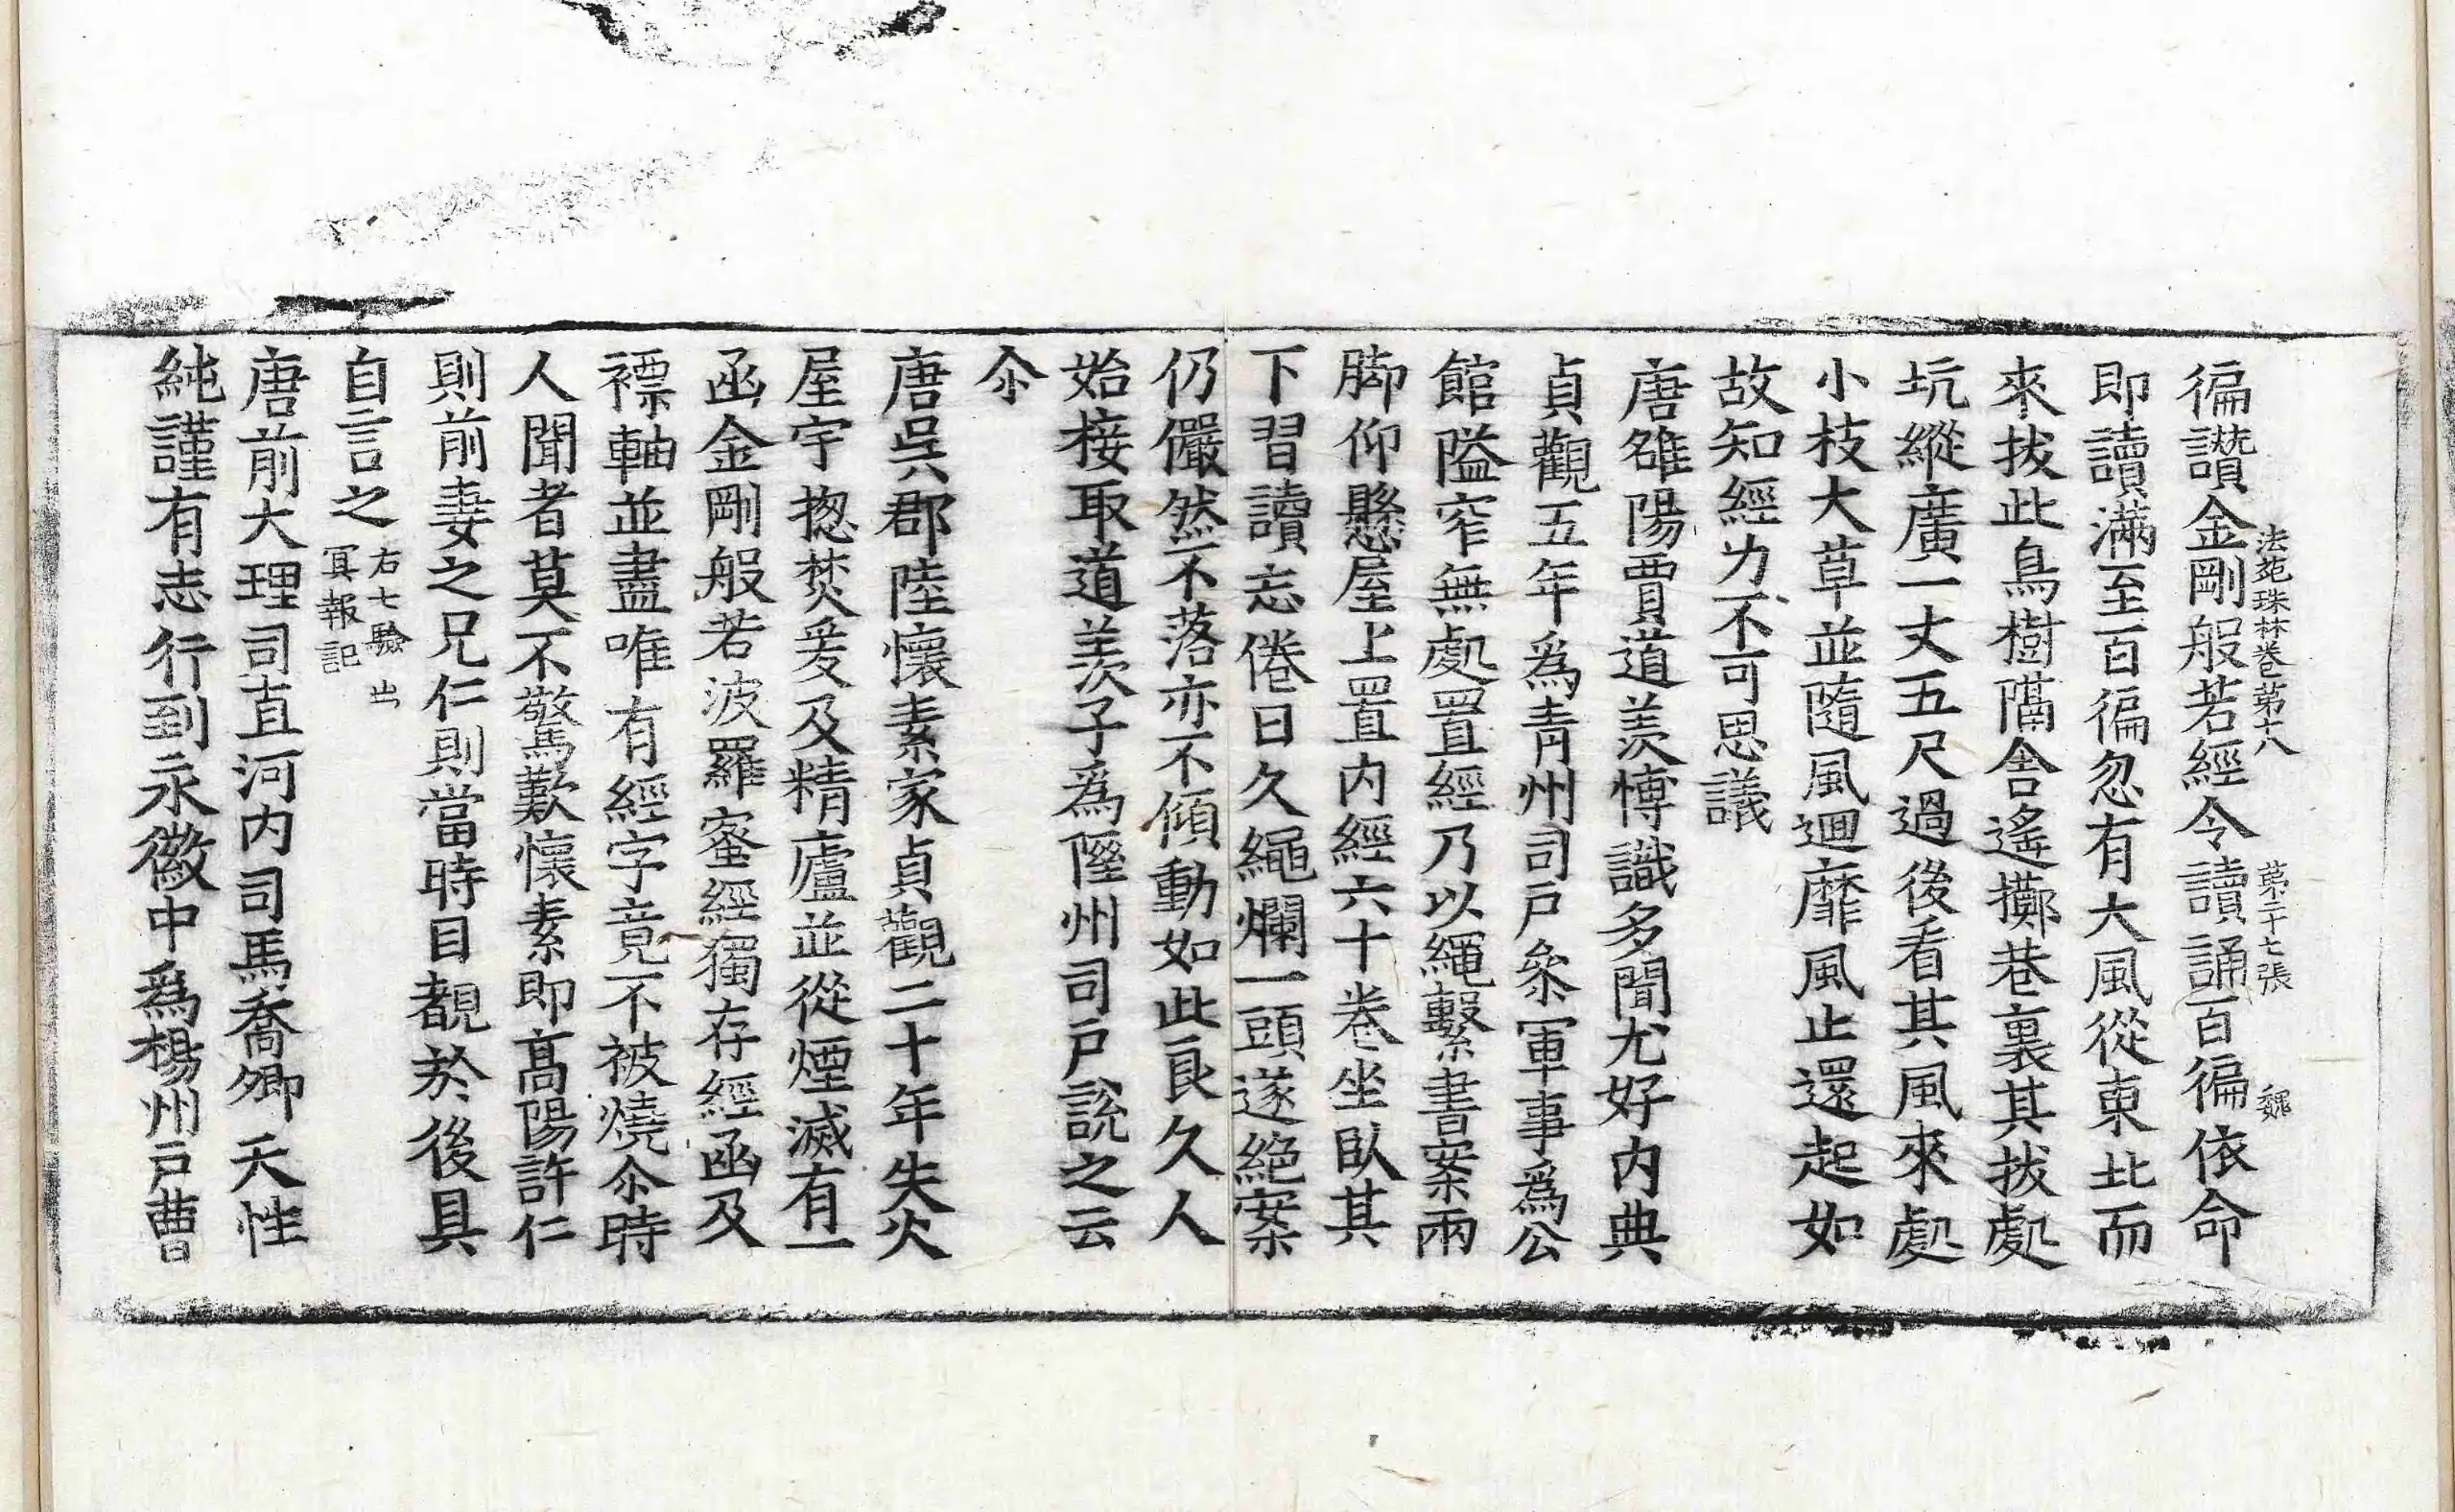 法苑珠林卷第十八 第二十七張 魏
徧讃金剛般若經令讀誦百徧依命
即讀滿至百徧忽有大風從東北而
來拔此鳥樹隔舍遙擲巷裏其拔處
坑縱廣一丈五尺過後看其風來處
小枝大草並隨風迴靡風止還起如
故知經力不可思議
唐雒陽賈道羨博識多聞尤好内典
貞觀五年爲青州司戶叅軍事爲公
館隘窄無處置經乃以繩繫書案兩
脚仰懸屋上置内經六十卷坐臥其
下習讀忘倦日久繩爛一頭遂絕案
仍儼然不落亦不傾動如此良久人
始接取道羨子爲隰州司戶說之云
尒
唐吳郡陸懷素家貞觀二十年失火
屋宇揔焚爰及精廬並從煙滅有一
函金剛般若波羅蜜經獨存經函及
褾軸並盡唯有經字竟不被燒尒時
人聞者莫不驚歎懷素即髙陽許仁
則前妻之兄仁則當時目覩於後具
自言之 右七驗出
冥報記
唐前大理司直河内司馬喬卿天性
純謹有志行到永徽中爲楊州戶曹